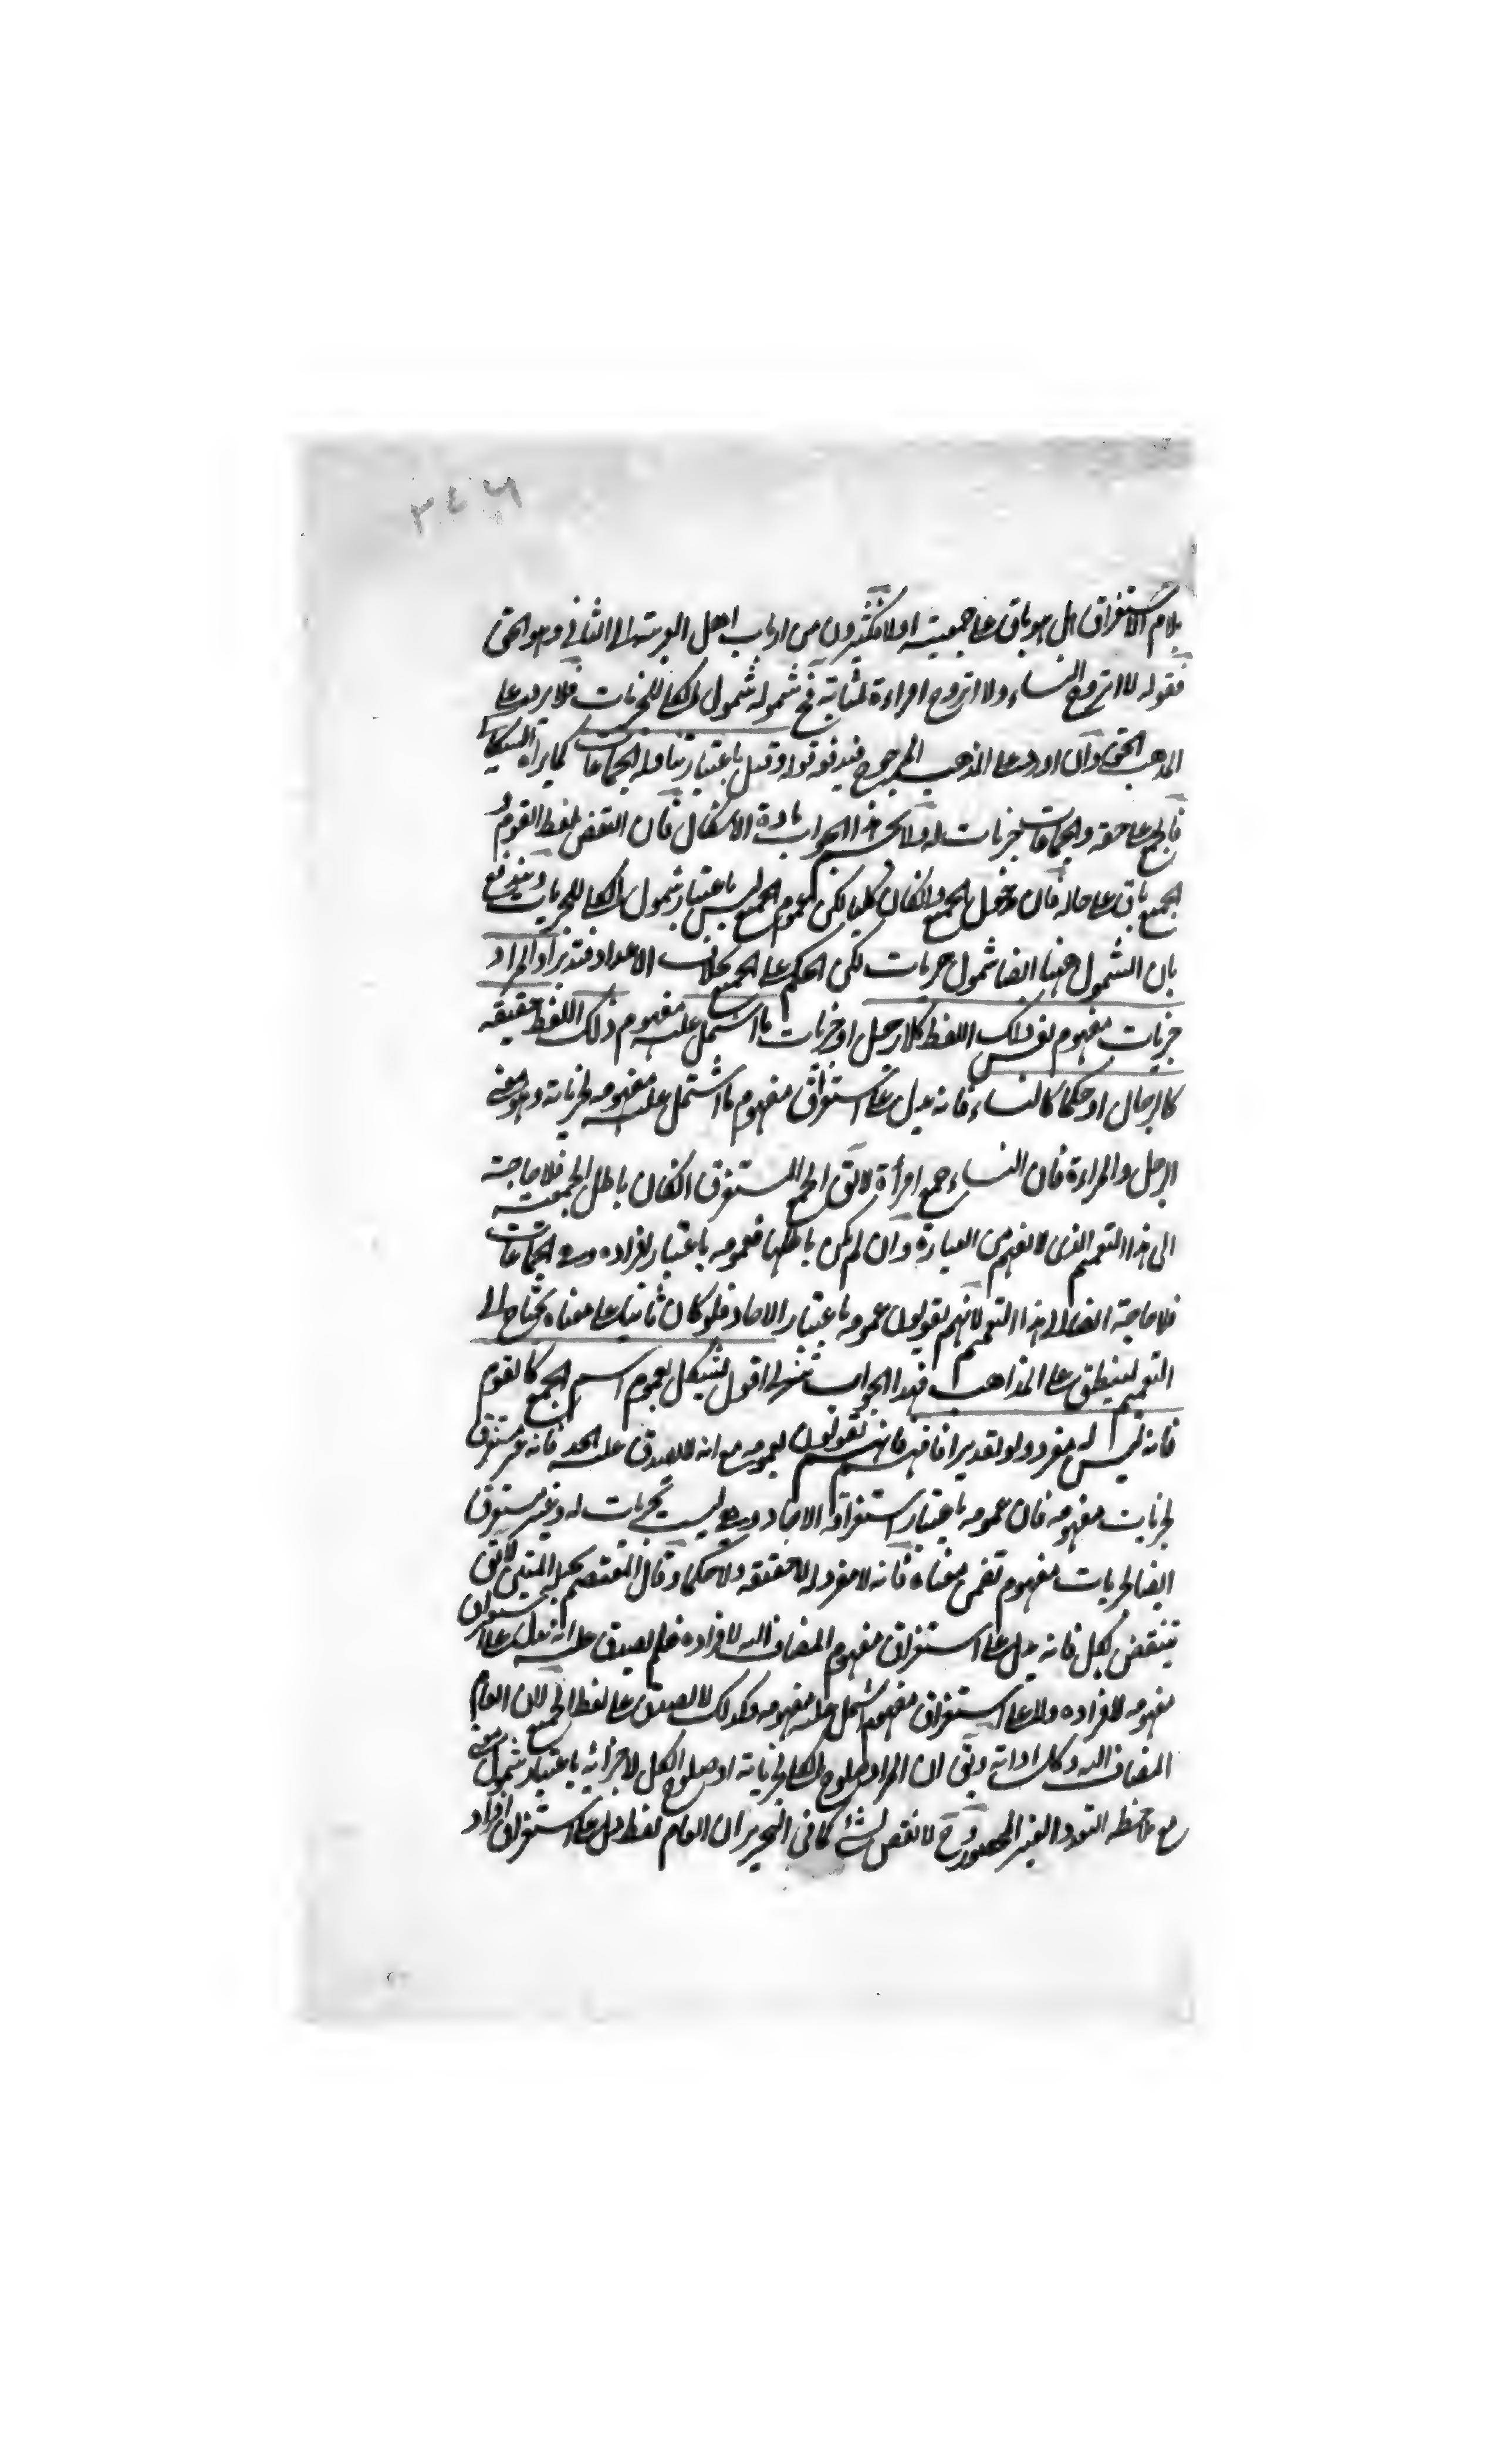 ٣٤٦
بلام الاستغراق هل هو باق على جمعيته اولا فكثيرون من ارباب اهل العربية الى الثاني وهو الحق
فقوله لا اتزوج النساء ولا اتزوج امراءة بمثابة فح شموله شمول الكلي للجزئيات فلا يرد على
المذهب الحق وان اورد على المذهب المرجوح فيدفع قوله وقيل باعتبار تناوله الجماعات كما يراه السكاكي
فالجمع على حقه والجماعات جزئيات له ولا يحسم هذا الجواب مادة الاشكال فان النقض بلفظ القوم و
الجميع باق على حاله فان مدخول الجميع وان كان كليا لكن عموم الجميع ليس باعتبار شمول الكلي للجزئيات ويدفع
بان الشمول ههنا ايضا شمول جزئيات لكن الحكم على الجميع بخلاف الاعداد فتدبر او المراد
جزئيات مفهوم نفس ذلك اللفظ كلا رجل او جزئيات ما اشتمل عليه مفهوم ذلك اللفظ حقيقة
كالرجال او حكما كالنساء فانه يدل على استغراق مفهوم ما اشتمل عليه مفهومه لجزئياته وهو معنى
الرجل والمراءة فان النساء جمع امرأة لا يق الجمع المستغرق ان كان باطل الجمعية فلا حاجة
الى هذا التعميم الذى لا يفهم من العبارة وان لم يكن باطلها فعمومه باعتبار افراده وهى الجماعات
فلا حاجة ايضا الى هذا التعميم لانهم يقولون عمومه باعتبار الاحاد فلو كان ثابتا على معناه يحتاج الى
التعميم لينطبق على المذاهب فهذا الجواب تنزلى اقول يشكل بعموم اسم الجمع كالقوم
فانه ليس له مفرد ولو تقديرا فافهم فانهم يقولون بعمومه مع انه لا يصدق عليه الحد فانه غير مستغرق
لجزئيات مفهومه فان عمومه باعتبار استغراقه الاحاد وهى ليست بجزئيات له وغير مستغرق
ايضا لجزئيات مفهوم تضمن معناه فانه لا مفرد له لا حقيقة ولا حكما وقال المعتصم بحبل المتين لا يق
ينتقض بكل فانه يدل على استغراق مفهوم المضاف اليه لافراده فلم يصدق عليه انه يدل على استغراق
مفهومه لافراده ولا على استغراق مفهوم اشتمل عليه مفهومه وكذلك لا يصدق على لفظ الجميع لان العام
المضاف اليه وكل اداته ويق ان المراد صلوح الكلي لجزئياته او صلوح الكل لاجزائه باعتبار شمول معنى
مع ملاحظة التعدد الغير المحصور وح لا نقض بشئ كما في التحرير ان العام لفظ دل على استغراق افراد